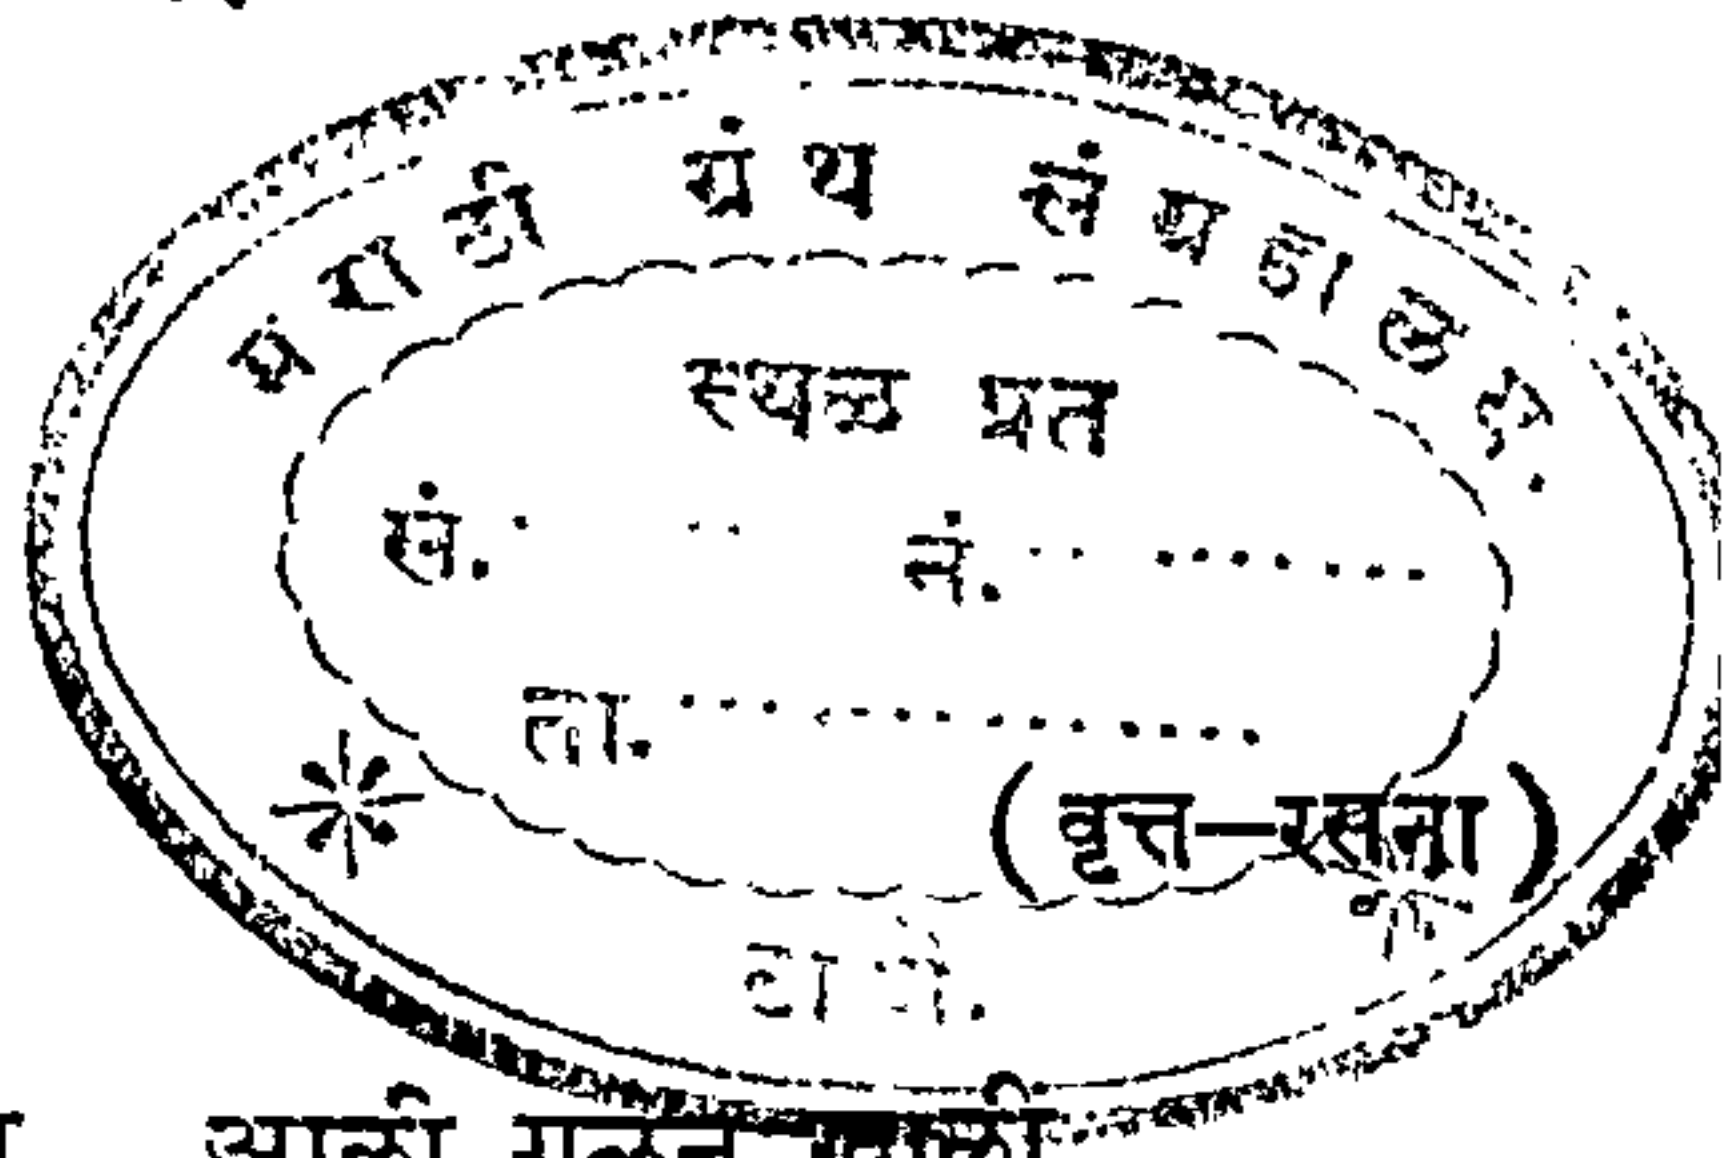 मराठी ग्रंथ संग्रहालय.
स्थळ प्रत
सं. .......... नं. ..........
ता. ..........
( वृत्त—रचना )
ठाणें.